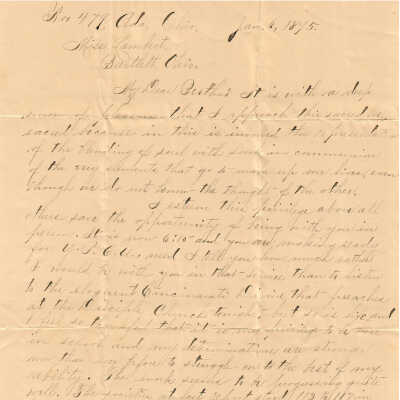 Box 477 Ada, Ohio, Jan. 6, 1895.
Miss Lambert,
Bartlett Ohio.
My Dear Bertha: It is with a deep
sense of pleasure that I approach this sacred
sacred because in this is
of the of soul with soul in communion
of the very elements that go to make up our lives, even
though we do not know the thought of the other.
I esteem this privilege above all
others save the opportunity of being with you in
person. It is now 6:10 and you are making ready
for Y.P.C.U. and I tell you how much rather
I would be with you in that service than to listen
to the eloquent Cincinnati Divine that preaches
at the Disciple Church tonight, but so it is and
I feel so thankful that it is my privilege to be
in school and my determinations are stronger
now than ever before to struggle on to the best of my
ability. The work seems to be progressing quite
well,